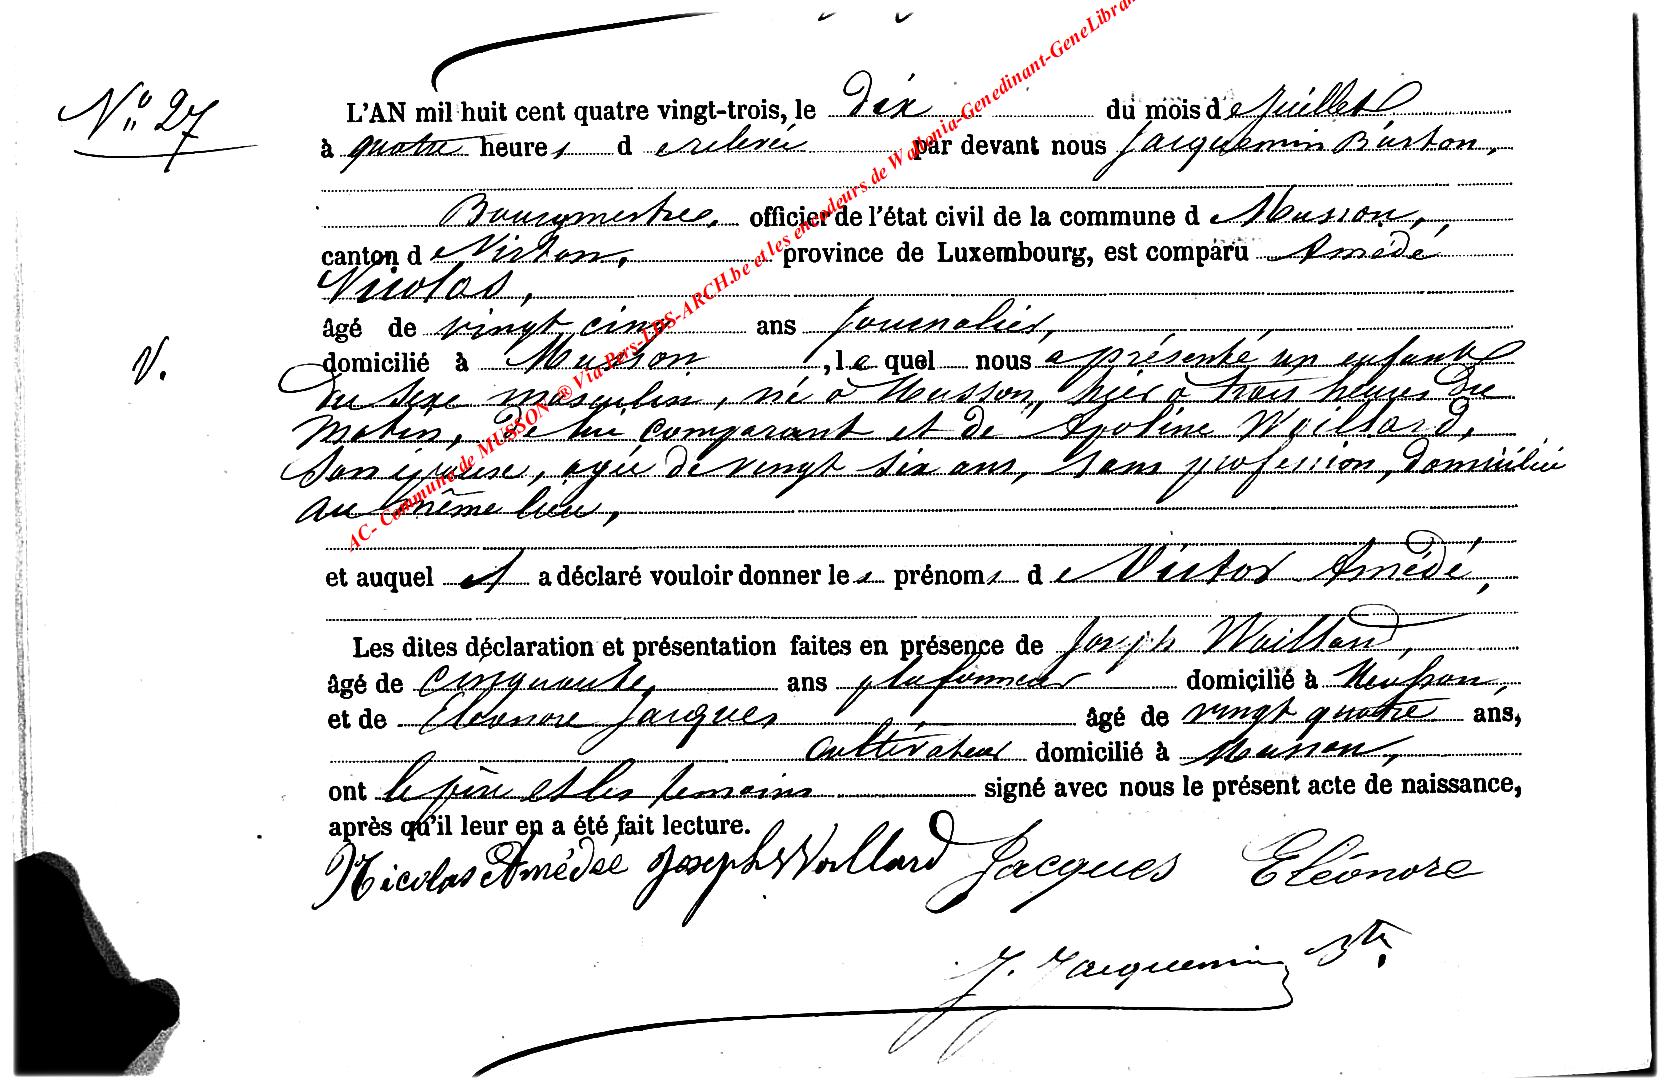 N° 27
L'AN mil huit cent quatre vingt-trois, le dix du mois de Juillet
à quatre heures de relevée par devant nous Jacquemin Burton,
Bourgmestre, officier de l'état civil de la commune de Musson,
canton de Virton, province de Luxembourg, est comparu Amédé
Nicolas,
âgé de vingt cinq ans Journalier,
V.
domicilié à Musson, lequel nous a présenté un enfant
du sexe masculin, né à Musson, hier à trois heures du
matin, de lui comparant et de Apoline Waillard,
son épouse, agée de vingt six ans, sans profession, domiciliée
au même lieu,
et auquel il a déclaré vouloir donner les prénoms de Victor Amédé,
Les dites déclaration et présentation faites en présence de Joseph Waillard,
âgé de cinquante, ans plafonneur domicilié à Musson,
et de Eléonore Jacques âgé de vingt quatre ans,
cultivateur domicilié à Musson,
ont le père et les temoins signé avec nous le présent acte de naissance,
après qu'il leur en a été fait lecture.
Nicolas Amédée Joseph Wallard Jacques Eléonore
J. Jacquemin Btn
AC- Commune de MUSSON ® Via Pers-LDS-ARCH.be et les encodeurs de Wallonia-Genedinant-GeneLibran